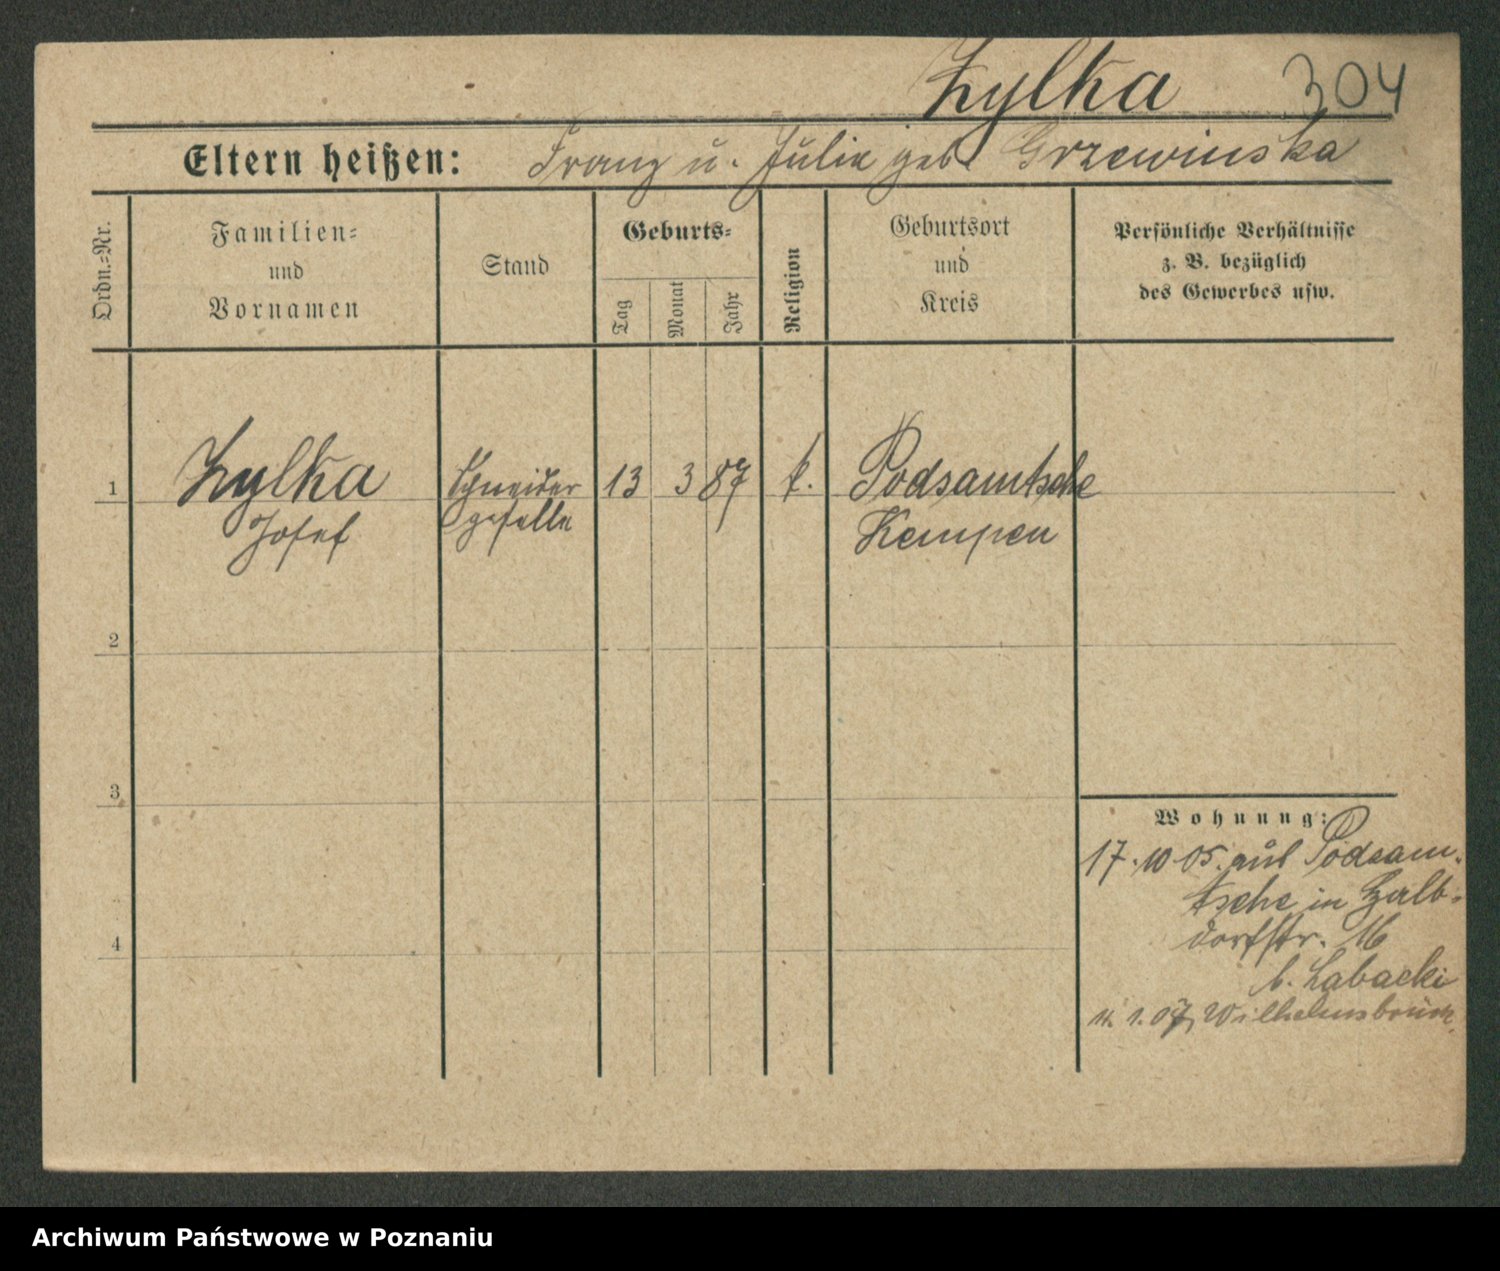 Zylka 304
Eltern heißen: Franz u. Julie geb. Grzewinska
Ordn.=Nr.
Familien=
und
Vornamen
Stand
Geburts=
Tag
Monat
Jahr
Religion
Geburtsort
und
Kreis
Persönliche Verhältnisse
z. B. bezüglich
des Gewerbes usw.
1 Zylka Schneider 13 3 87 k. Podsamtsche
Josef geselle Kempen
2
3
Wohnung:
17.10.05. aus Podsam-
tsche in Halb-
dorfstr. 16
b. Labacki
1.07, Wilhelmsbrück
4
Archiwum Państwowe w Poznaniu